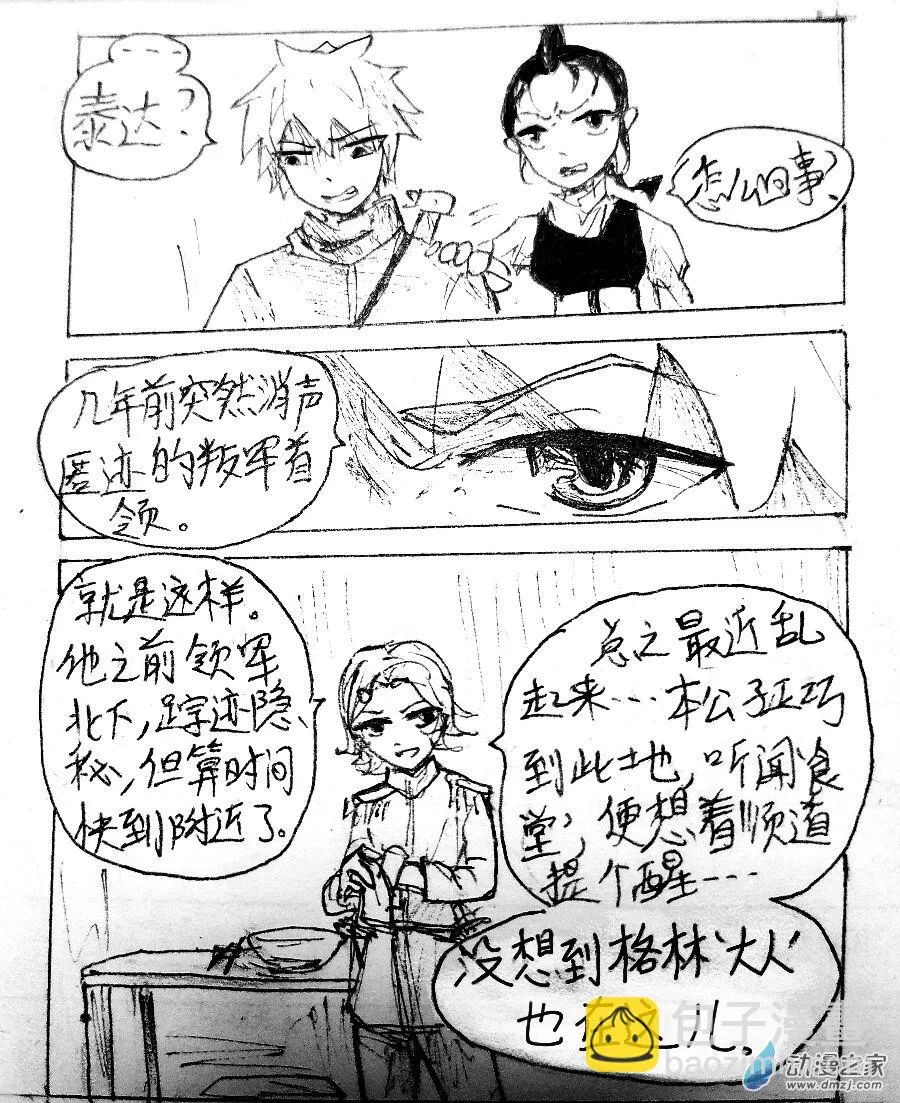 ---
泰达?
怎么回事?
几年前突然消声
匿迹的叛军首
领。
就是这样。
他之前领军
北下,踪迹隐
秘,但算时间
快到附近了。
总之最近乱
起来…本公子正巧
到此地,听闻食
堂,便想着顺道
提个醒----
没想到格林'大人'
也在这儿。
包子漫画
baozi
动漫之家
www.dmzj.com